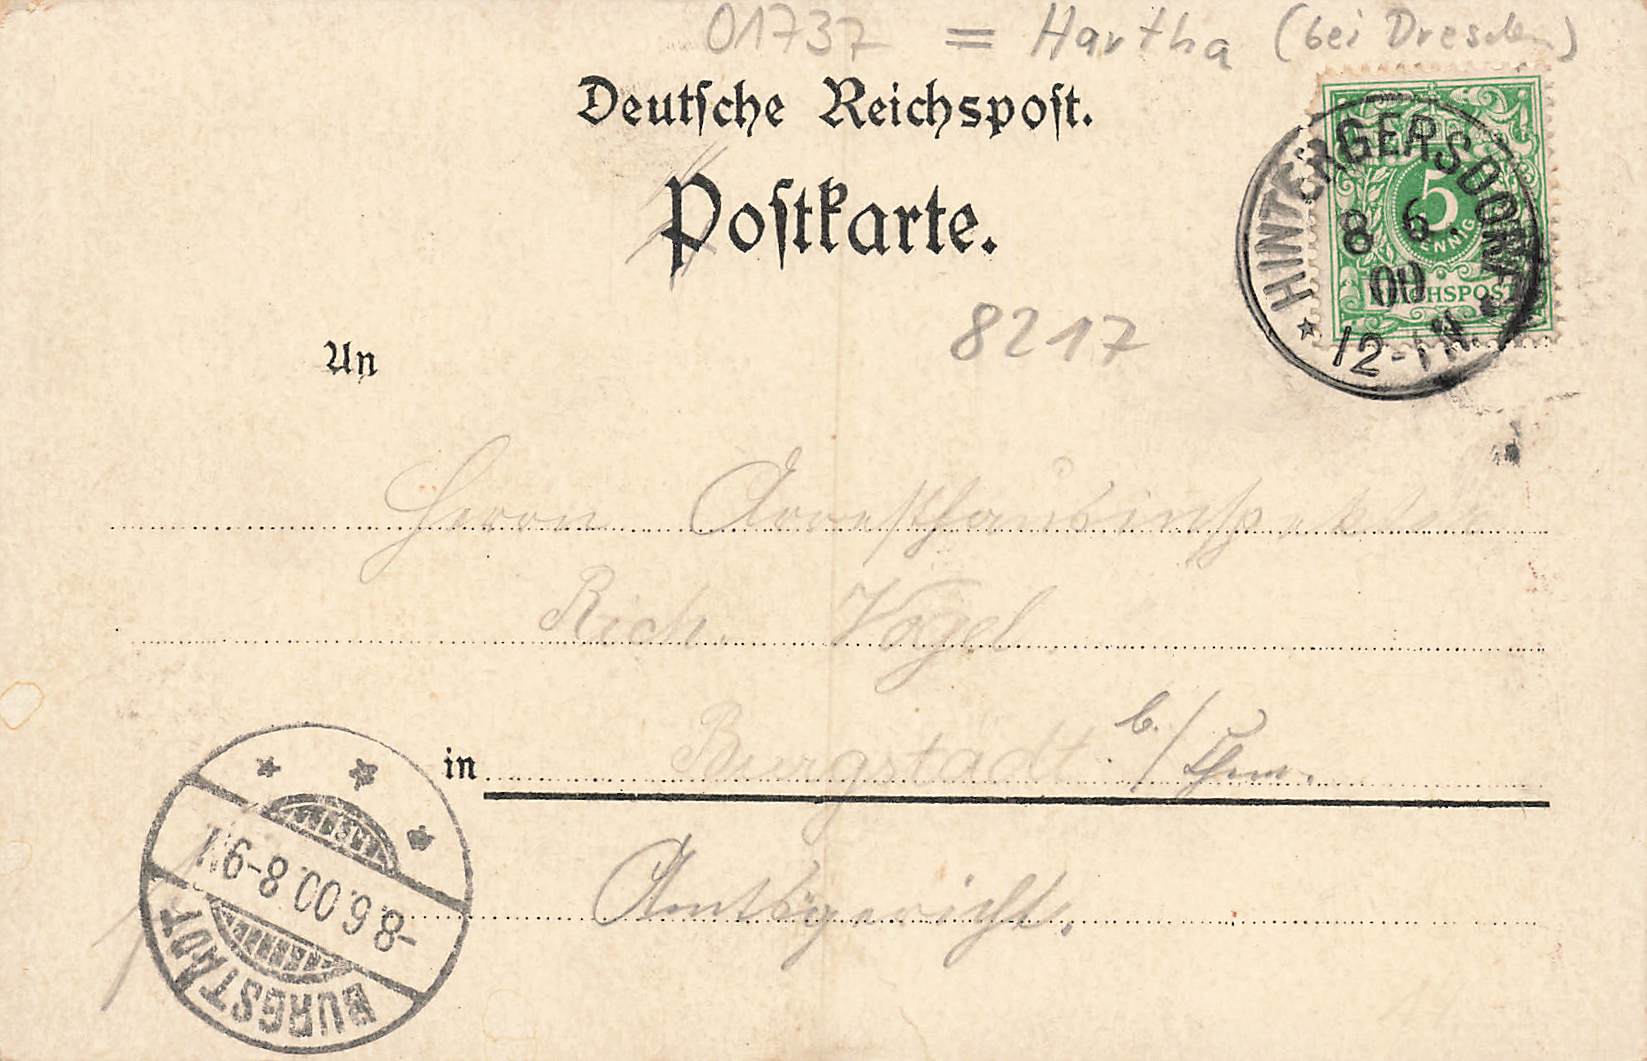 01737 = Hartha (bei Dresden)
Deutsche Reichspost.
Postkarte.
HINTERGERSDORF
8 6.
00
12-1N.
5
PFENNIG
REICHSPOST
8217
An
Herrn Arresthausinspektor
Rich. Vogel
in Burgstädt b./Chem.
Amtsgericht.
BURGSTÄDT
-8.6.00.8-9N.